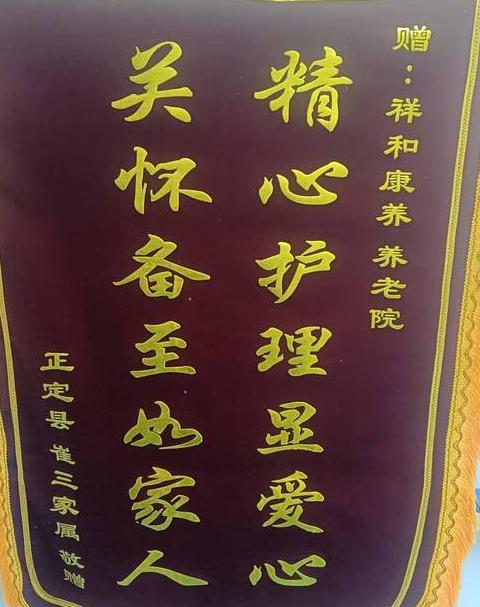 赠：祥和康养 养老院
精心护理显爱心
关怀备至如家人
正定县 崔三家属 敬赠